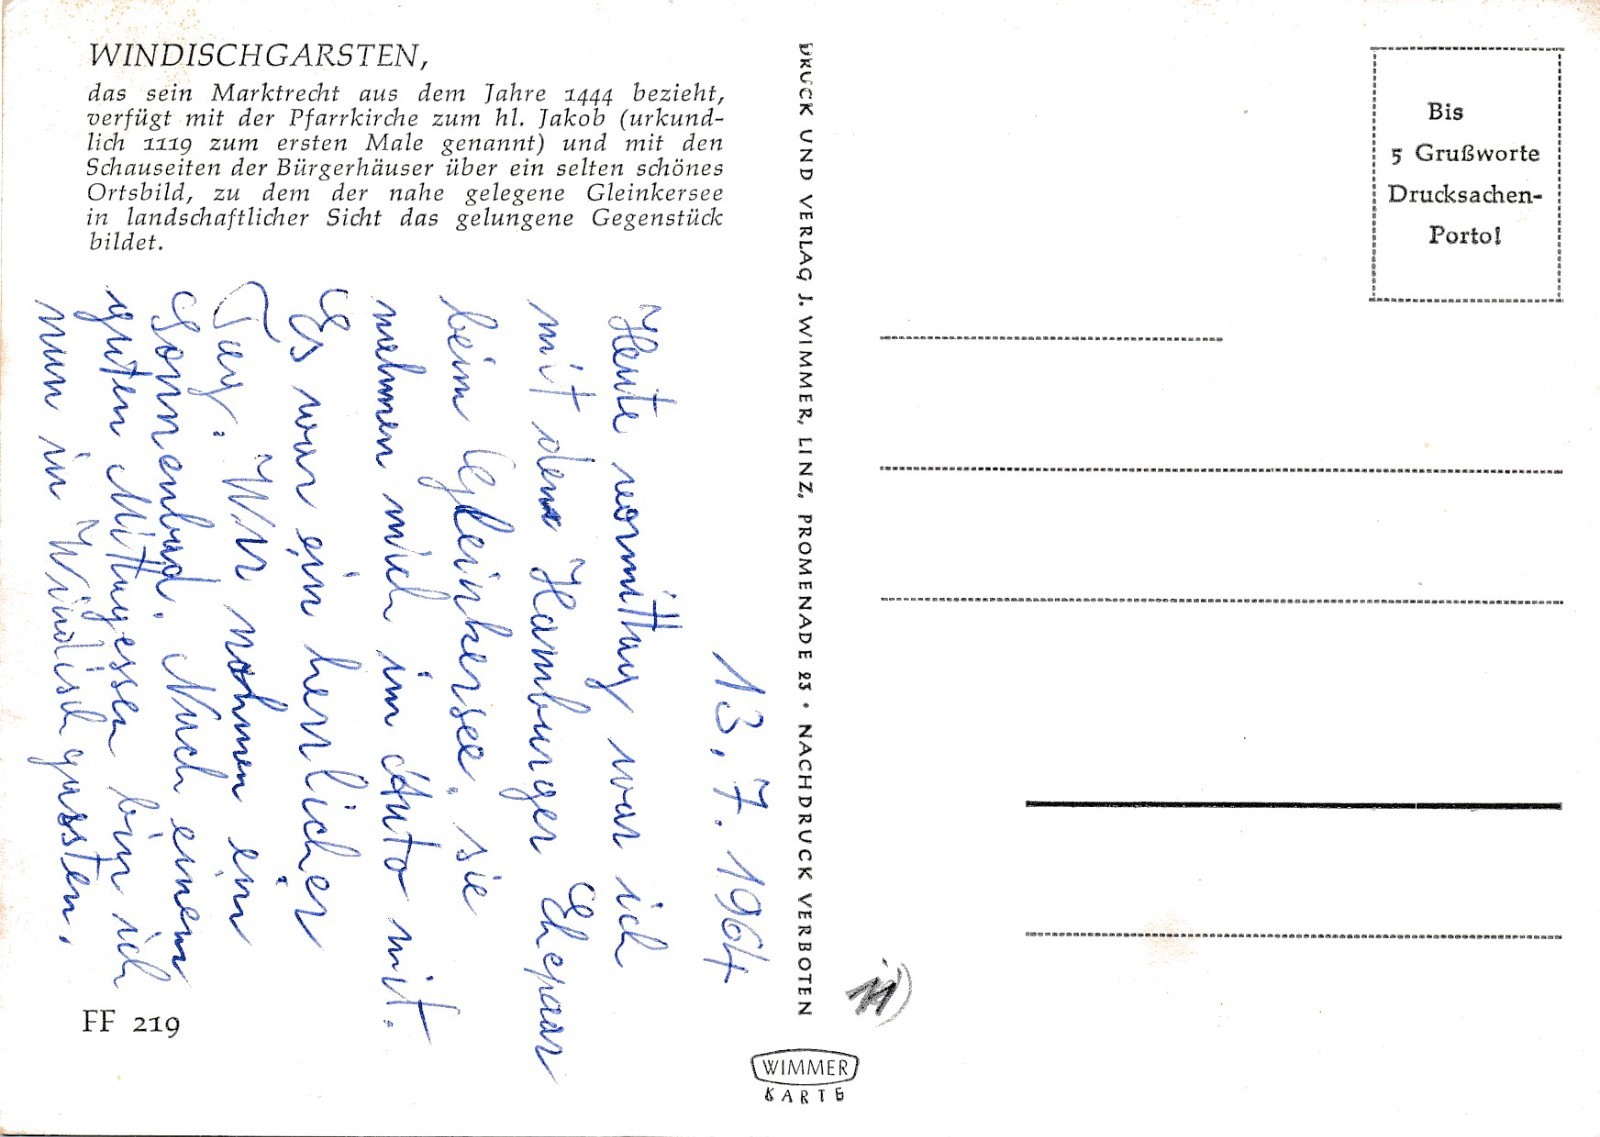 WINDISCHGARSTEN,
das sein Marktrecht aus dem Jahre 1444 bezieht,
verfügt mit der Pfarrkirche zum hl. Jakob (urkund-
lich 1119 zum ersten Male genannt) und mit den
Schauseiten der Bürgerhäuser über ein selten schönes
Ortsbild, zu dem der nahe gelegene Gleinkersee
in landschaftlicher Sicht das gelungene Gegenstück
bildet.
13.7.1964
Heute vormittag war ich
mit dem Hamburger Ehepaar
beim Gleinkersee. sie
nahmen mich im Auto mit.
Es war ein herrlicher
Tag. Wir nahmen ein
Sonnenbad. Nach einem
guten Mittagessen bin ich
nun in Windischgarsten.
FF 219
DRUCK UND VERLAG J. WIMMER, LINZ, PROMENADE 23 • NACHDRUCK VERBOTEN
WIMMER
KARTE
Bis
5 Grußworte
Drucksachen-
Porto!